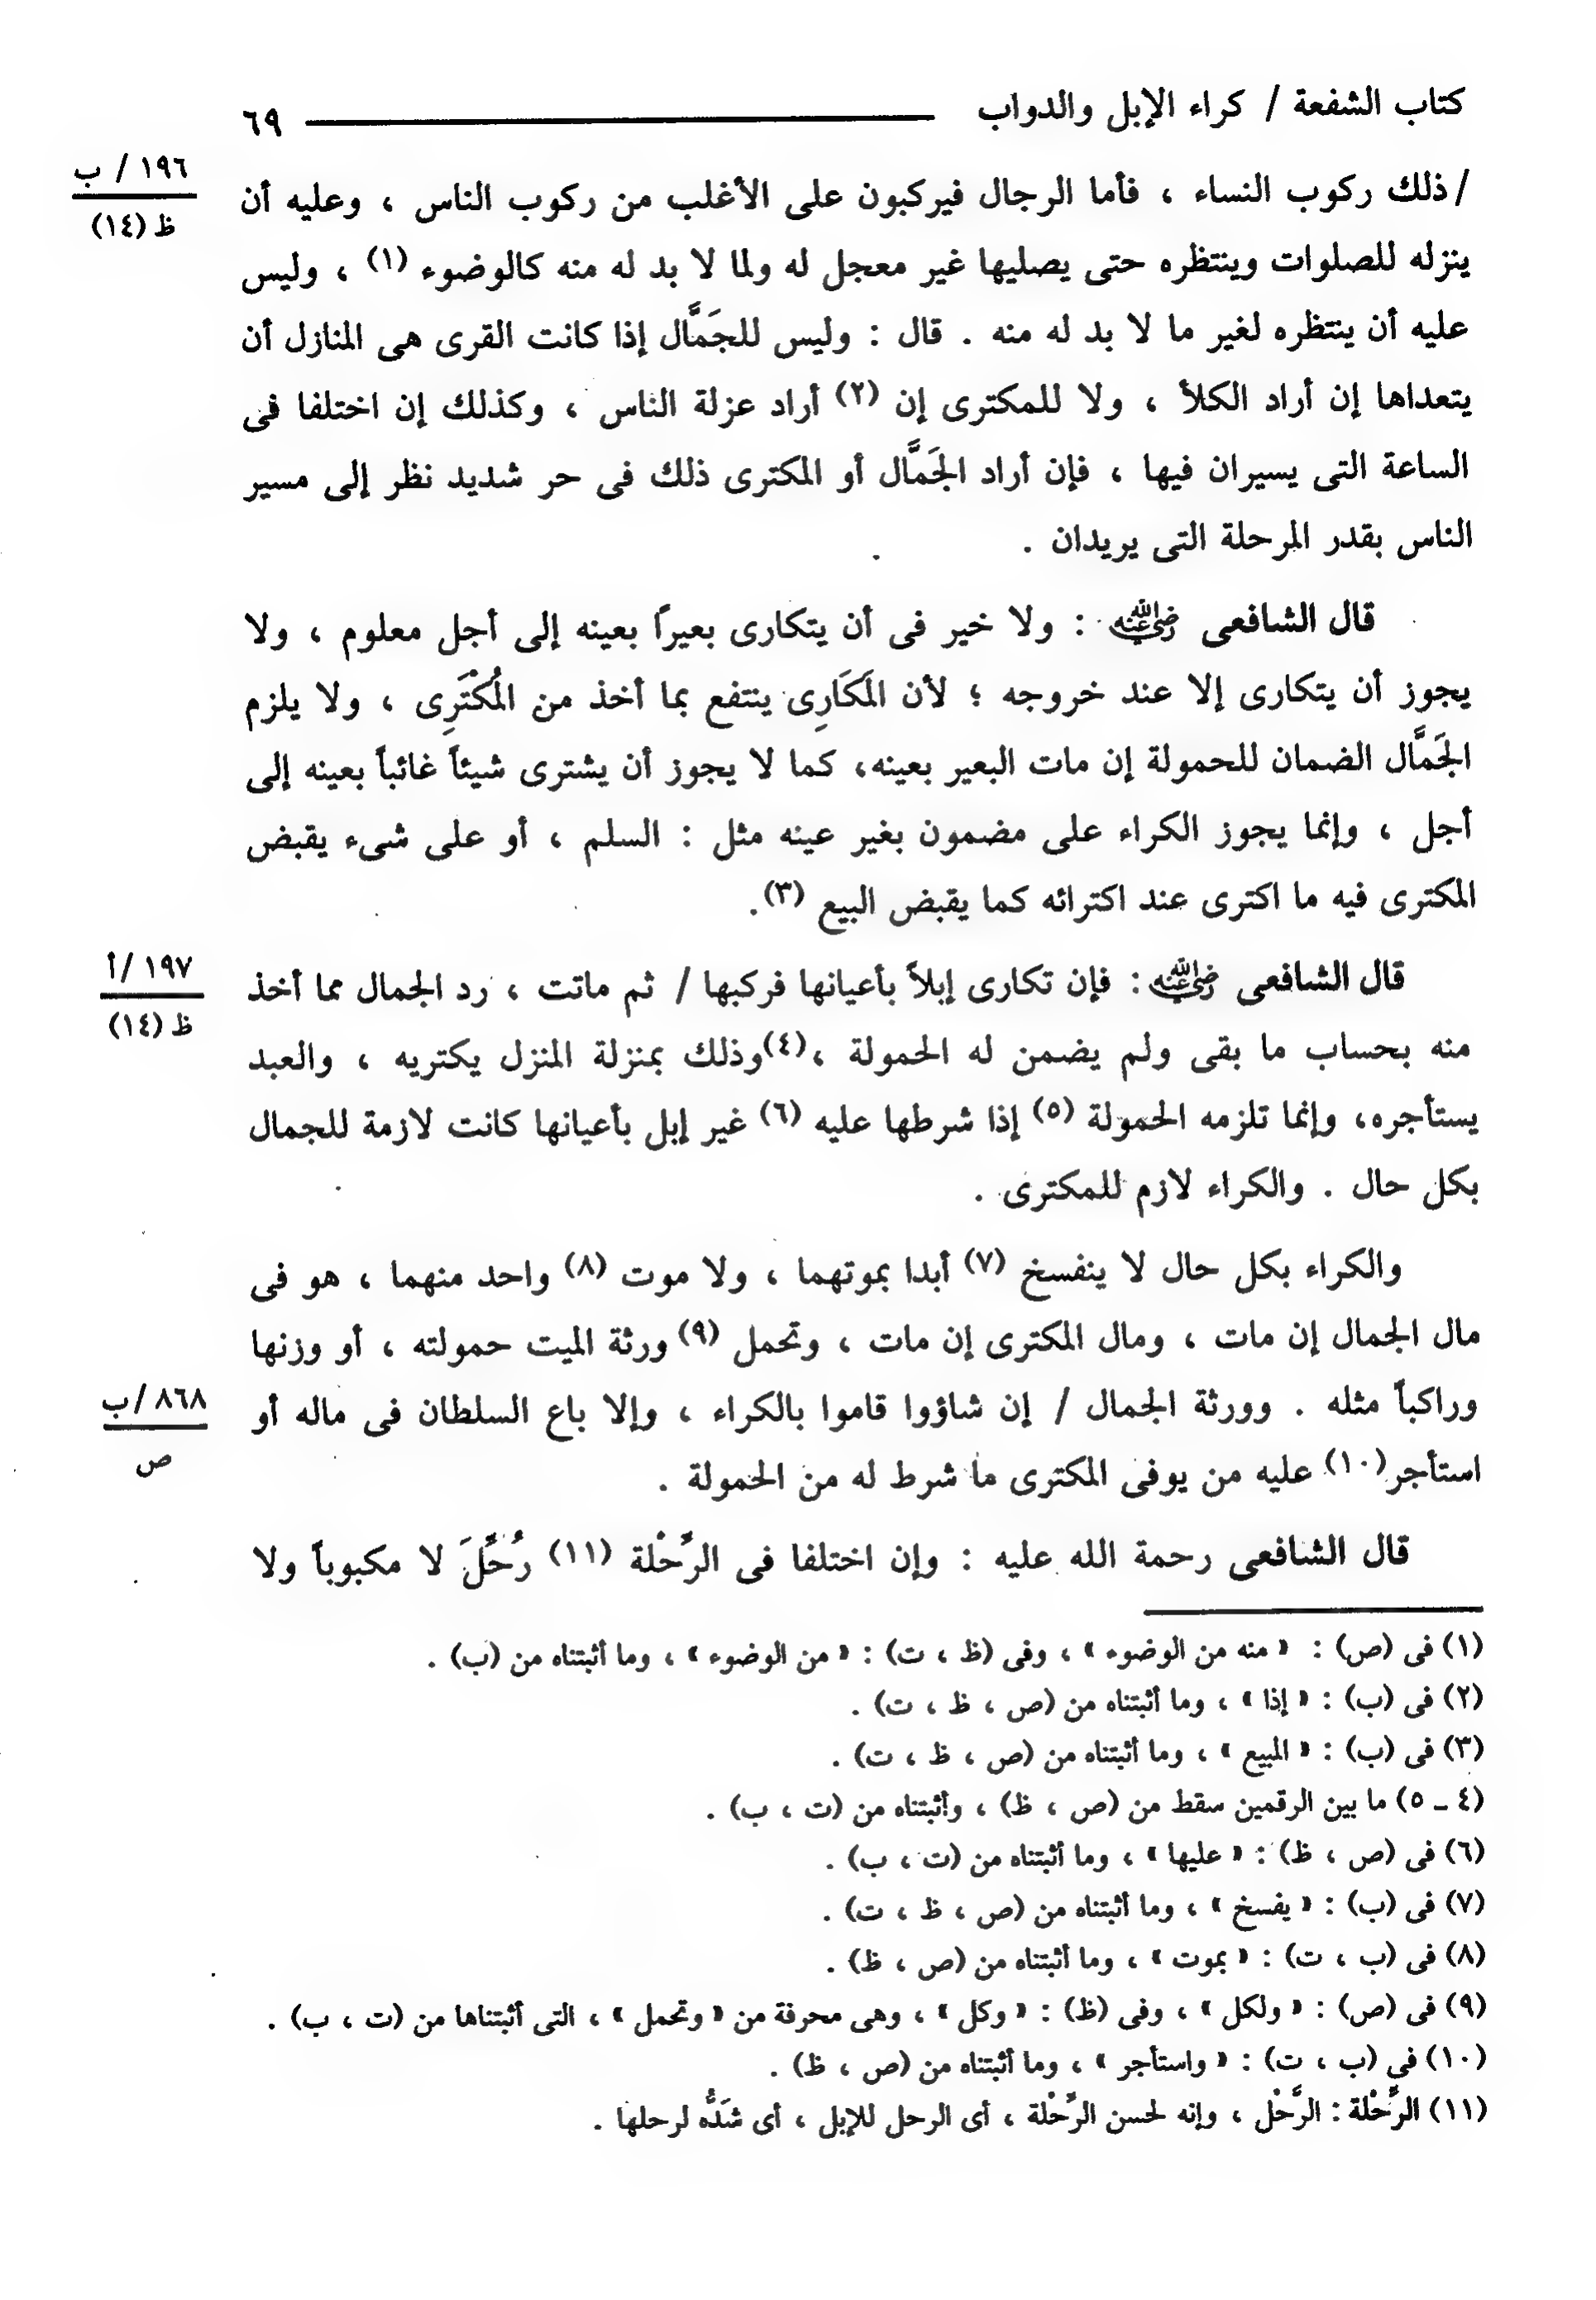 كتاب الشفعة / كراء الإبل والدواب ٦٩
١٩٦ / ب
ظ (١٤)
/ ذلك ركوب النساء ، فأما الرجال فيركبون على الأغلب من ركوب الناس ، وعليه أن
ينزله للصلوات وينتظره حتى يصليها غير معجل له ولما لا بد له منه كالوضوء (١) ، وليس
عليه أن ينتظره لغير ما لا بد له منه . قال : وليس للجَمَّال إذا كانت القرى هى المنازل أن
يتعداها إن أراد الكلأ ، ولا للمكترى إن (٢) أراد عزلة الناس ، وكذلك إن اختلفا فى
الساعة التى يسيران فيها ، فإن أراد الجَمَّال أو المكترى ذلك فى حر شديد نظر إلى مسير
الناس بقدر المرحلة التى يريدان .
قال الشافعى رضي الله عنه : ولا خير فى أن يتكارى بعيراً بعينه إلى أجل معلوم ، ولا
يجوز أن يتكارى إلا عند خروجه ؛ لأن المَكَارِى ينتفع بما أخذ من المُكْتَرِى ، ولا يلزم
الجَمَّال الضمان للحمولة إن مات البعير بعينه، كما لا يجوز أن يشترى شيئاً غائباً بعينه إلى
أجل ، وإنما يجوز الكراء على مضمون بغير عينه مثل : السلم ، أو على شىء يقبض
المكترى فيه ما اكترى عند اكترائه كما يقبض البيع (٣).
١٩٧ /أ
ظ (١٤)
قال الشافعى رضي الله عنه : فإن تكارى إبلاً بأعيانها فركبها / ثم ماتت ، رد الجمال مما أخذ
منه بحساب ما بقى ولم يضمن له الحمولة ،(٤)وذلك بمنزلة المنزل يكتريه ، والعبد
يستأجره، وإنما تلزمه الحمولة (٥) إذا شرطها عليه (٦) غير إبل بأعيانها كانت لازمة للجمال
بكل حال . والكراء لازم للمكترى .
والكراء بكل حال لا ينفسخ (٧) أبدا بموتهما ، ولا موت (٨) واحد منهما ، هو فى
مال الجمال إن مات ، ومال المكترى إن مات ، وتحمل (٩) ورثة الميت حمولته ، أو وزنها
وراكباً مثله . وورثة الجمال / إن شاؤوا قاموا بالكراء ، وإلا باع السلطان فى ماله أو
٨٦٨ /ب
ص
استأجر(١٠) عليه من يوفى المكترى ما شرط له من الحمولة .
قال الشافعى رحمة الله عليه : وإن اختلفا فى الرِّحْلة (١١) رُحِّلَ لا مكبوباً ولا
(١) فى (ص) : « منه من الوضوء » ، وفى (ظ ، ت) : « من الوضوء » ، وما أثبتناه من (ب) .
(٢) فى (ب) : « إذا » ، وما أثبتناه من (ص ، ظ ، ت) .
(٣) فى (ب) : « المبيع » ، وما أثبتناه من (ص ، ظ ، ت) .
(٤ ـ ٥) ما بين الرقمين سقط من (ص ، ظ) ، وأثبتناه من (ت ، ب) .
(٦) فى (ص ، ظ) : « عليها » ، وما أثبتناه من (ت ، ب) .
(٧) فى (ب) : « يفسخ » ، وما أثبتناه من (ص ، ظ ، ت) .
(٨) فى (ب ، ت) : « بموت » ، وما أثبتناه من (ص ، ظ) .
(٩) فى (ص) : « ولكل » ، وفى (ظ) : « وكل » ، وهى محرفة من « وتحمل » ، التى أثبتناها من (ت ، ب) .
(١٠) في (ب ، ت) : « واستأجر » ، وما أثبتناه من (ص ، ظ) .
(١١) الرِّحْلة : الرَّحْل ، وإنه لحسن الرِّحْلة ، أى الرحل للإبل ، أى شَدُّه لرحلها .